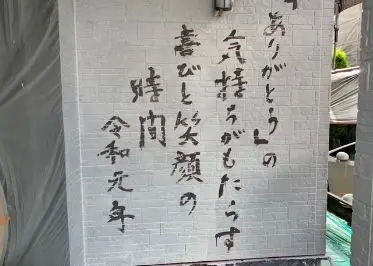 「ありがとう」の
気持ちがもたらす
喜びと笑顔の
時間
令和元年